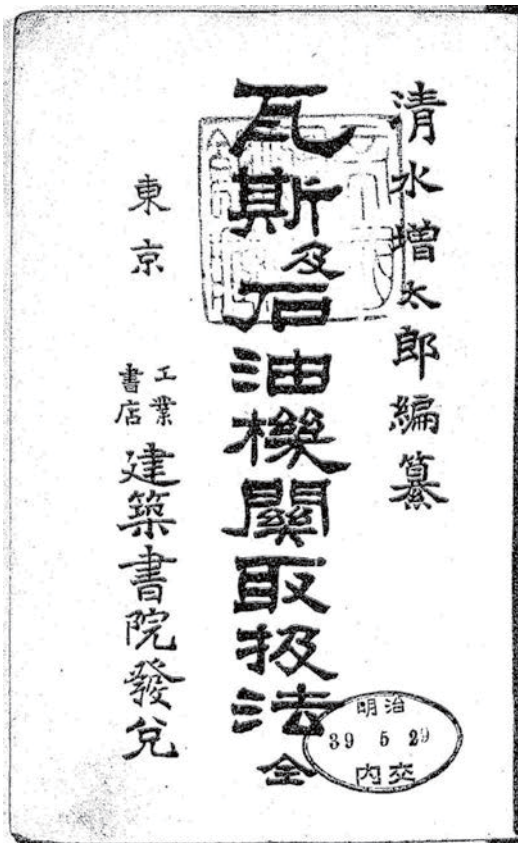 清水增太郎編纂
瓦斯及石油機關取扱法 全
東京
工業書店
建築書院發兌
明治
39 5 29
内交